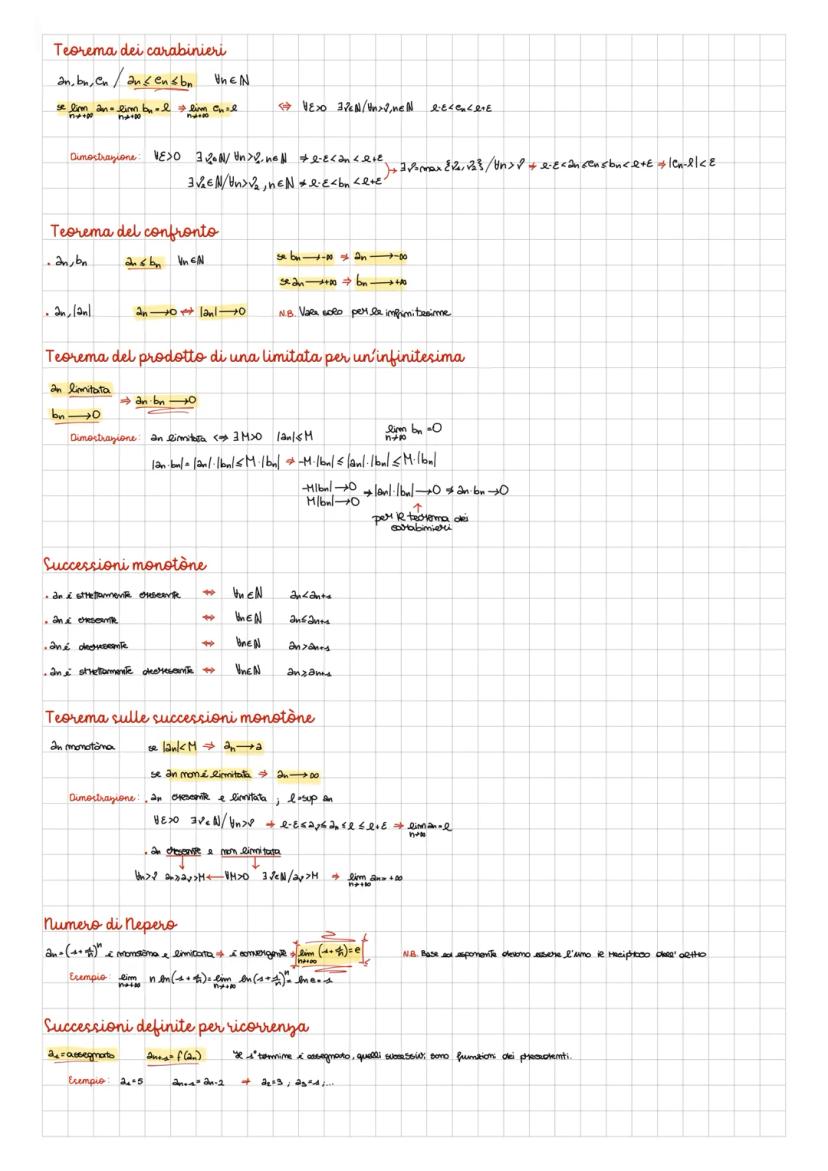 Teorema dei carabinieri
an, bn, cn / an ≤ cn ≤ bn ∀n∈N
se lim an = lim bn = l ⇒ lim cn = l ⇔ ∀ε>0 ∃ν∈N/∀n>ν, n∈N l-ε<cn<l+ε
n→+∞ n→+∞ n→+∞
Dimostrazione: ∀ε>0 ∃ν1∈N/∀n>ν1, n∈N ⇒ l-ε<an<l+ε
∃ν2∈N/∀n>ν2, n∈N ⇒ l-ε<bn<l+ε
∃ν=max{ν1,ν2}/∀n>ν ⇒ l-ε<an≤cn≤bn<l+ε ⇒ |cn-l|<ε
Teorema del confronto
. an, bn an ≤ bn ∀n∈N se bn→-∞ ⇒ an→-∞
se an→+∞ ⇒ bn→+∞
. an, |an| an→0 ⇔ |an|→0 N.B. Vale solo per le infinitesime
Teorema del prodotto di una limitata per un'infinitesima
an limitata
bn→0 ⇒ an·bn→0
Dimostrazione: an limitata ⇔ ∃M>0 |an|≤M lim bn=0
n→+∞
|an·bn|=|an|·|bn|≤M·|bn| ⇒ -M·|bn|≤|an|·|bn|≤M·|bn|
-M|bn|→0
M|bn|→0 ⇒ |an|·|bn|→0 ⇒ an·bn→0
↑
per il teorema dei
carabinieri
Successioni monotòne
. an è strettamente crescente ⇔ ∀n∈N an<an+1
. an è crescente ⇔ ∀n∈N an≤an+1
. an è decrescente ⇔ ∀n∈N an>an+1
. an è strettamente decrescente ⇔ ∀n∈N an≥an+1
Teorema sulle successioni monotòne
an monotòna se |an|<M ⇒ an→a
se an non è limitata ⇒ an→∞
Dimostrazione: . an crescente e limitata ; l=sup an
∀ε>0 ∃ν∈N/∀n>ν ⇒ l-ε≤aν≤an≤l≤l+ε ⇒ lim an=l
n→+∞
. an crescente e non limitata
∀n>ν an≥aν>M ← ∀M>0 ∃ν∈N/aν>M ⇒ lim an=+∞
n→+∞
Numero di Nepero
an=(1+1/n)^n è monotòna e limitata ⇒ è convergente ⇒ lim (1+1/n)^n=e N.B. Base ed esponente devono essere l'uno il reciproco dell'altro
n→+∞
Esempio: lim n ln(1+1/n)=lim ln(1+1/n)^n=ln e=1
n→+∞ n→+∞
Successioni definite per ricorrenza
a1=assegnato an+1=f(an) Il 1° termine è assegnato, quelli successivi sono funzioni dei precedenti.
Esempio: a1=5 an+1=an-2 ⇒ a2=3 ; a3=1 ;...